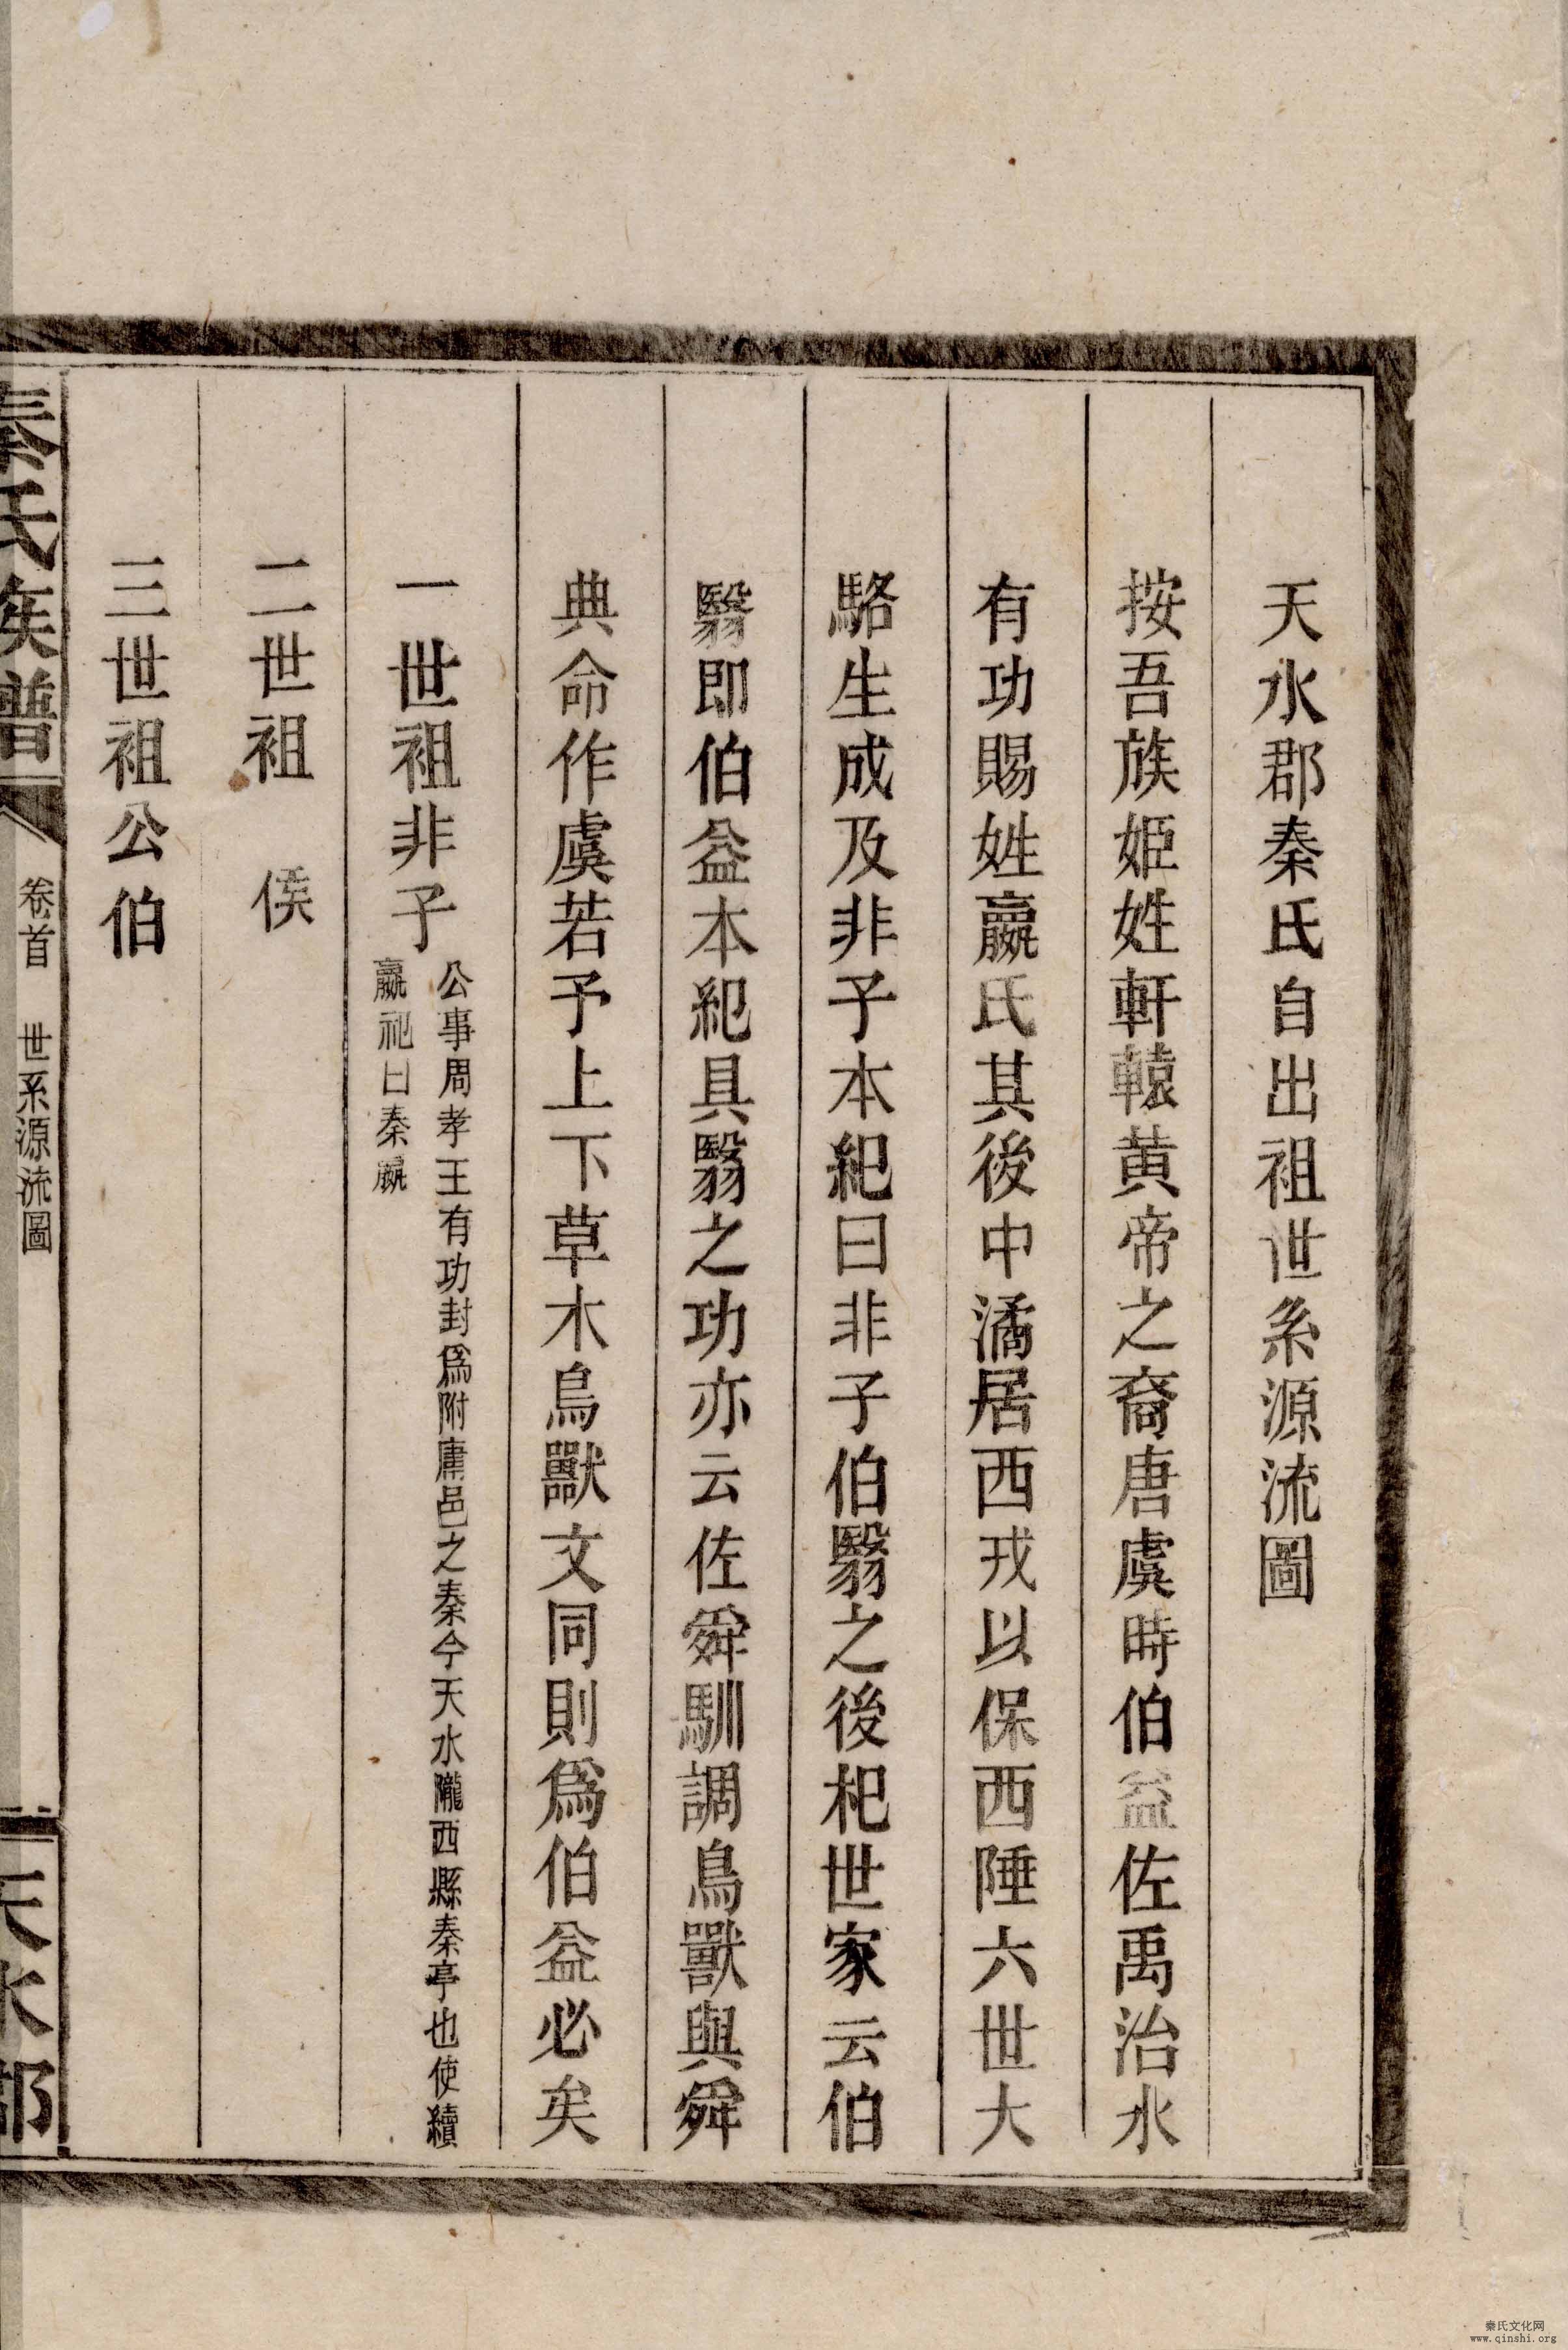 天水郡秦氏自出祖世系源流圖
按吾族姬姓軒轅黄帝之裔唐虞時伯益佐禹治水
有功賜姓嬴氏其後中潏居西戎以保西陲六世大
駱生成及非子本紀曰非子伯翳之後杞世家云伯
翳即伯益本紀具翳之功亦云佐舜馴調鳥獸與舜
典命作虞若予上下草木鳥獸文同則爲伯益必矣
一世祖非子
公事周孝王有功封爲附庸邑之秦今天水隴西縣秦亭也使續
嬴祀曰秦嬴
二世祖 侯
三世祖公伯
秦氏族譜
卷首 世系源流圖
天水郡
秦氏文化网
www.qinshi.org